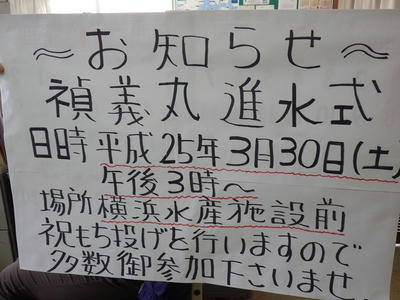 ～お知らせ～
禎義丸進水式
日時平成25年3月30日(土)
午後3時～
場所横浜水産施設前
祝もち投げと行いますので
多数御参加下さいませ